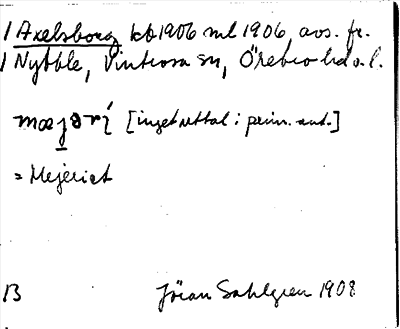 1 Axelsborg kb 1906 ml 1906, avs. fr.
1 Nybble, Vintrosa sn, Örebro hd o. l.
mœjərí [inget uttal i prim. ant.]
= Mejeriet
B Jöran Sahlgren 1908